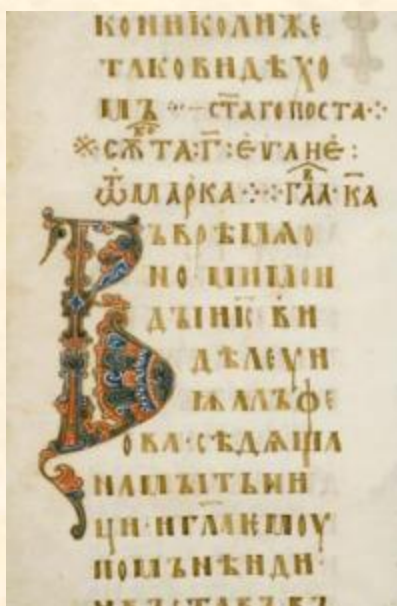 КОНИКОЛИЖЕ
ТАКОВИДѢХО
МЪ ·:- СТ҃АГОПОСТА·:
※ СѪТА·Г҃:ЕѴАНЕ:
ѾМАРКА·:·ГЛА К҃А
ВЪВРѢМѦО
НО·МИМОИ
ДЫИІС҃ВИ
ДѢЛЕУИ
ѬАЛЪФЕ
ОВА·СѢДѦЩА
НАМЫТЬНИ
ЦИ·ИГЛ҃АѤМОУ
ПОМЬНѢИДИ·
ИВЪСТАВЪВЪ